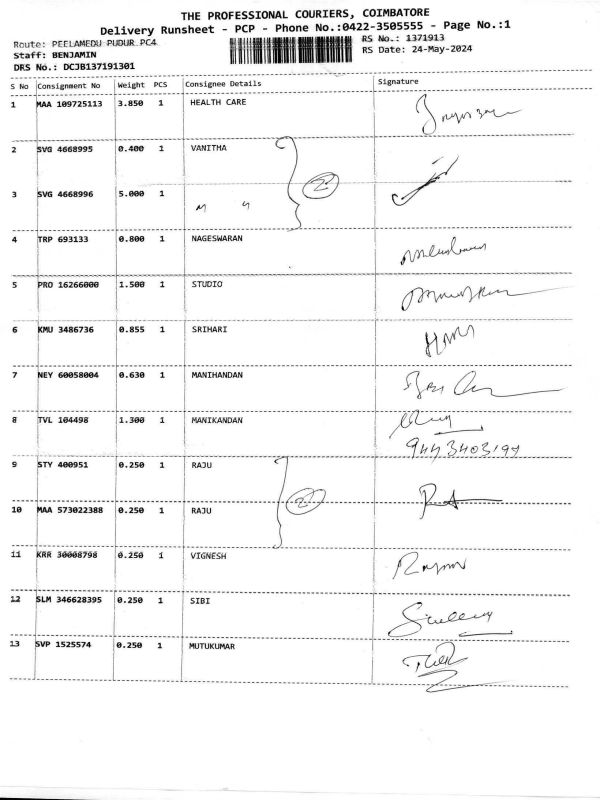 THE PROFESSIONAL COURIERS, COIMBATORE
Delivery Runsheet - PCP - Phone No.:0422-3505555 - Page No.:1
Route: PEELAMEDU PUDUR PC4 RS No.: 1371913
Staff: BENJAMIN RS Date: 24-May-2024
DRS No.: DCJB137191301
S No Consignment No Weight PCS Consignee Details Signature
1 MAA 109725113 3.850 1 HEALTH CARE
2 SVG 4668995 0.400 1 VANITHA
2
3 SVG 4668996 5.000 1
4 TRP 693133 0.800 1 NAGESWARAN
5 PRO 16266000 1.500 1 STUDIO
6 KMU 3486736 0.855 1 SRIHARI
7 NEY 60058004 0.630 1 MANIHANDAN
8 TVL 104498 1.300 1 MANIKANDAN
9443403197
9 STY 400951 0.250 1 RAJU
2
10 MAA 573022388 0.250 1 RAJU
11 KRR 30008798 0.250 1 VIGNESH
12 SLM 346628395 0.250 1 SIBI
13 SVP 1525574 0.250 1 MUTUKUMAR